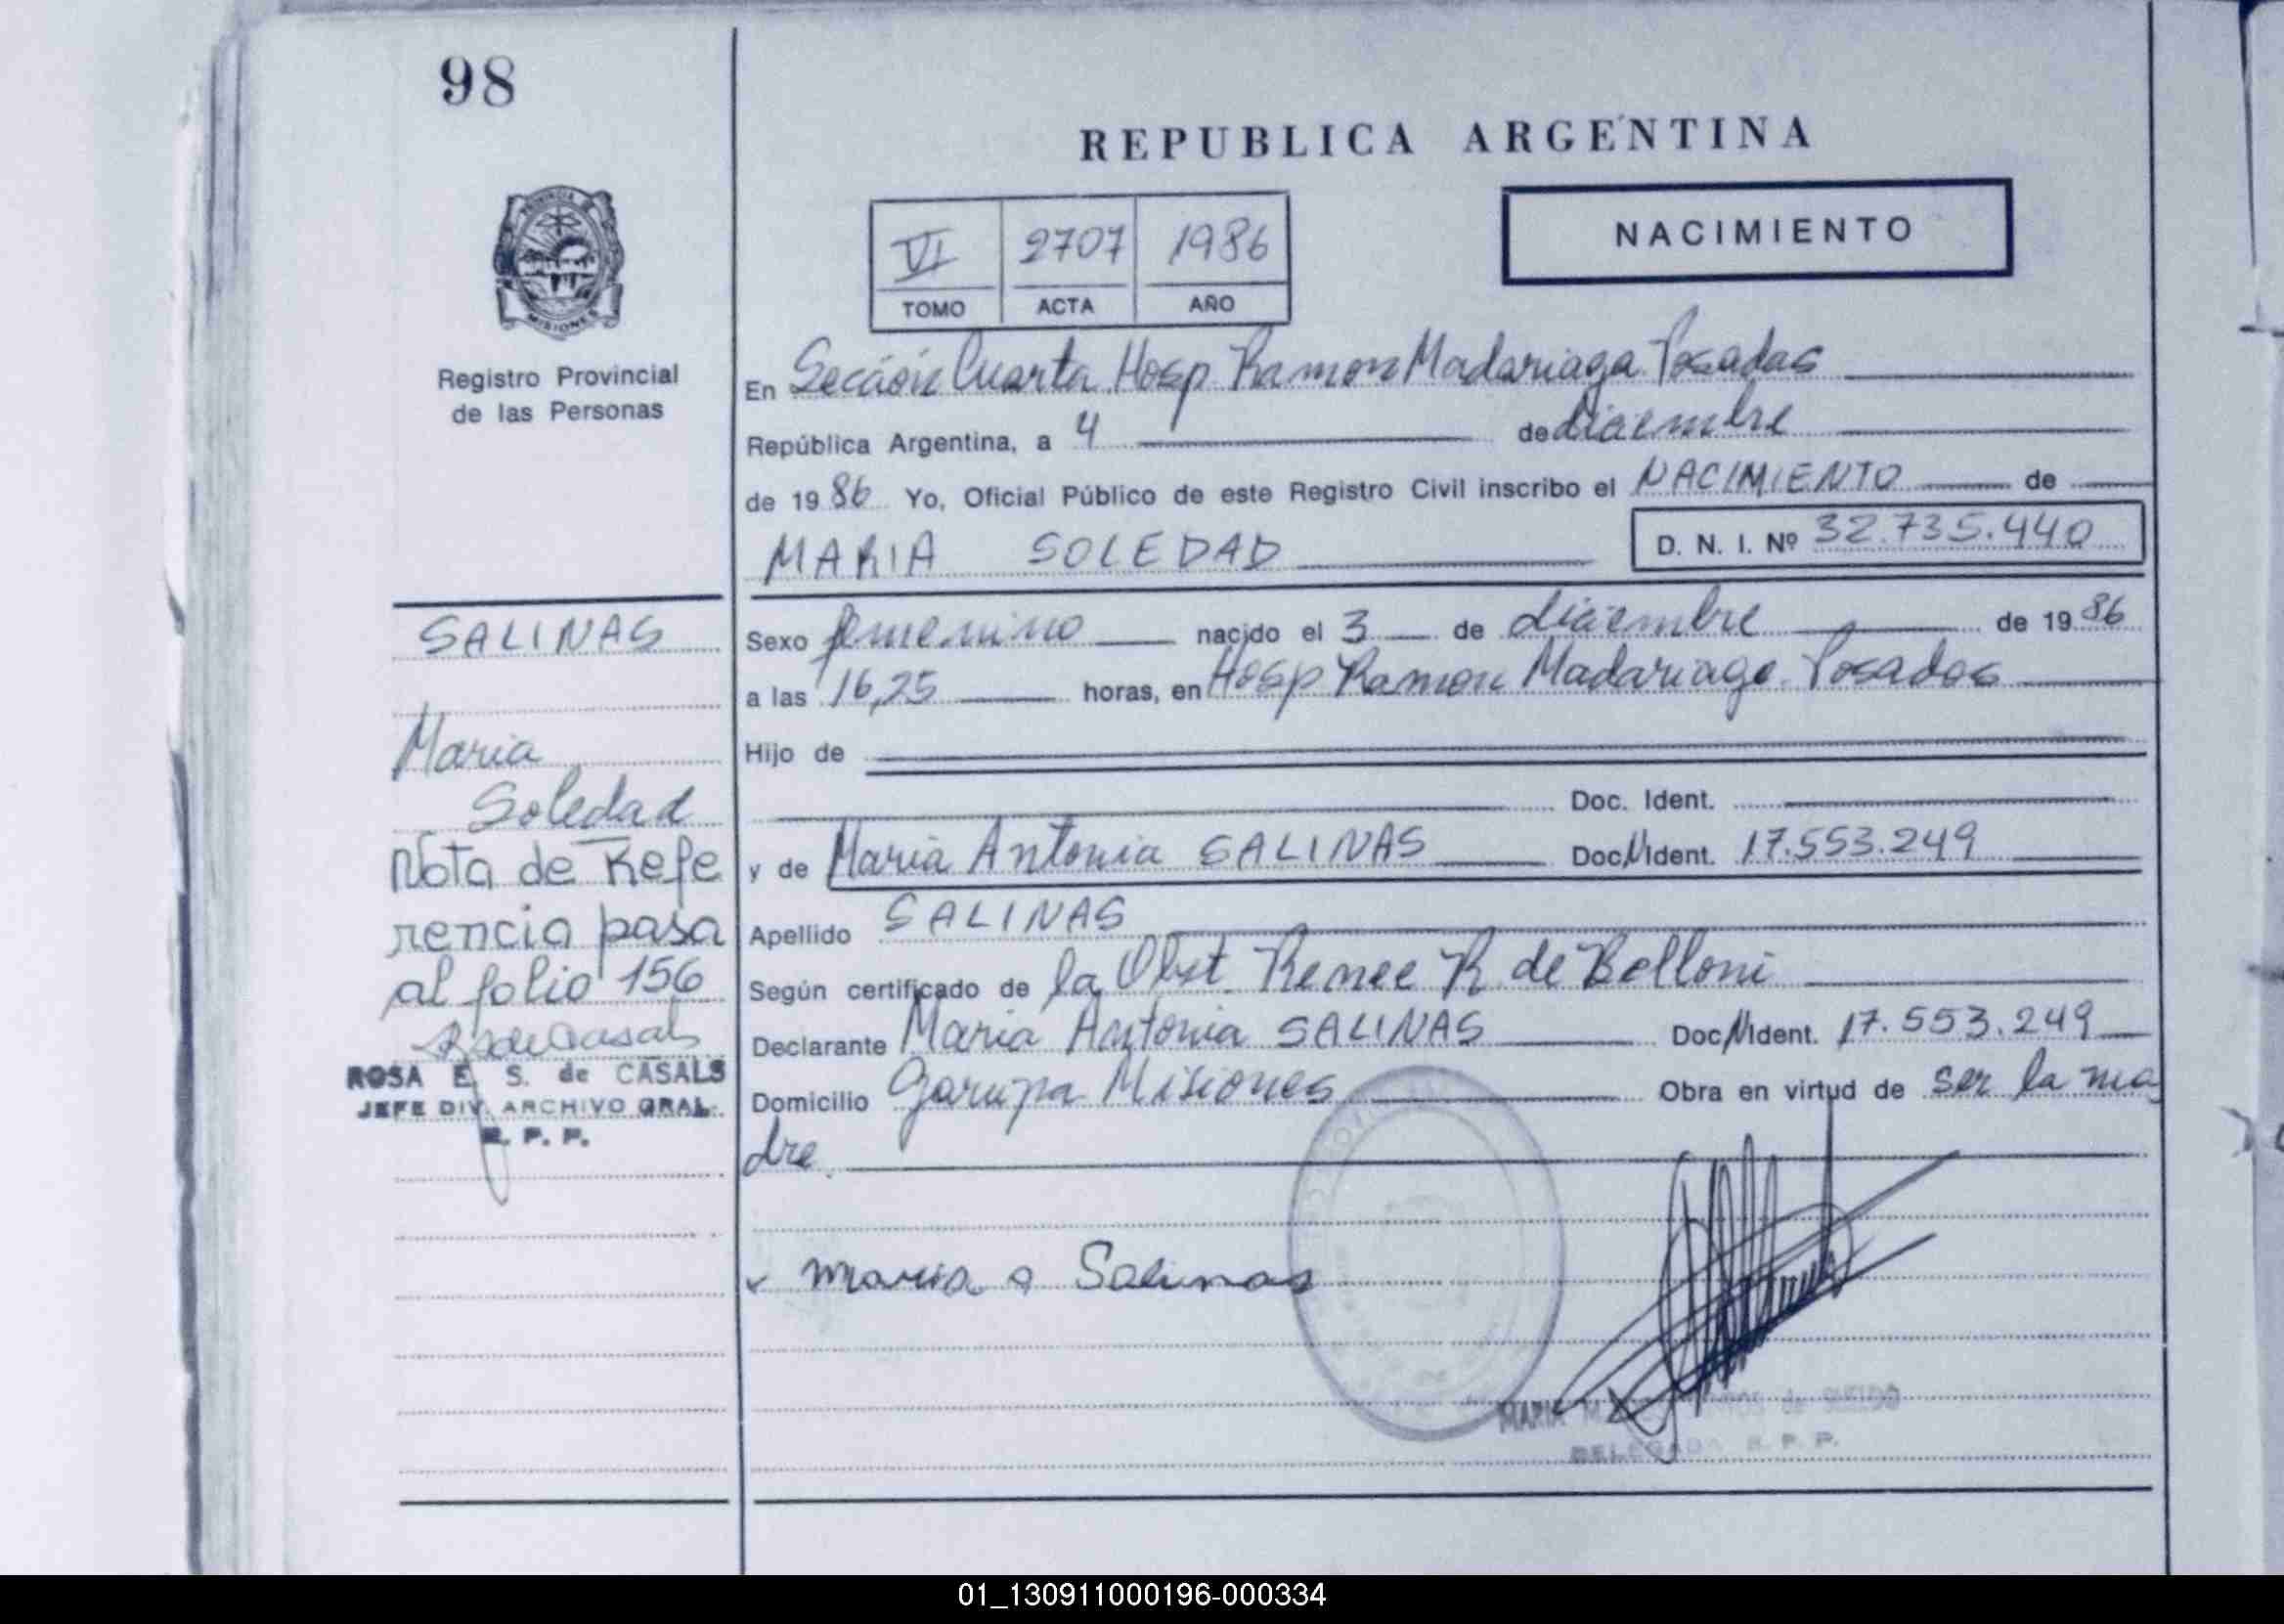 98
REPUBLICA ARGENTINA
PROVINCIA DE
MISIONES
Registro Provincial
de las Personas
VI 2707 1986
TOMO ACTA AÑO
NACIMIENTO
En Sección Cuarta Hosp Ramon Madariaga Posadas
República Argentina, a 4 de diciembre
de 1986 Yo, Oficial Público de este Registro Civil inscribo el NACIMIENTO de
MARIA SOLEDAD D. N. I. Nº 32.735.440
Sexo femenino nacido el 3 de diciembre de 1986
a las 16,25 horas, en Hosp Ramon Madariaga Posadas
Hijo de
Doc. Ident.
y de Maria Antonia SALINAS Doc. Ident. 17.553.249
Apellido SALINAS
Según certificado de la Obst. Renee R. de Belloni
Declarante Maria Antonia SALINAS Doc. Ident. 17.553.249
Domicilio Garupa Misiones Obra en virtud de ser la ma
dre.
Maria a Salinas
MARIA M. de
DELEGADA R. P. P.
SALINAS
Maria
Soledad
Nota de Refe
rencia pasa
al folio 156
R S de Casals
ROSA E. S. de CASALS
JEFE DIV. ARCHIVO GRAL.
R. P. P.
01_130911000196-000334